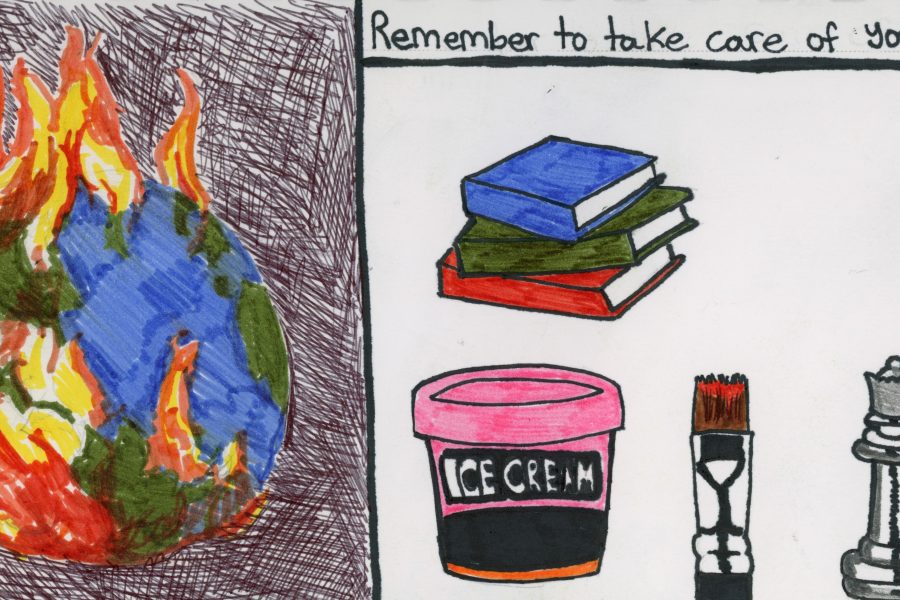 Remember to take care of yo
ICE CREAM